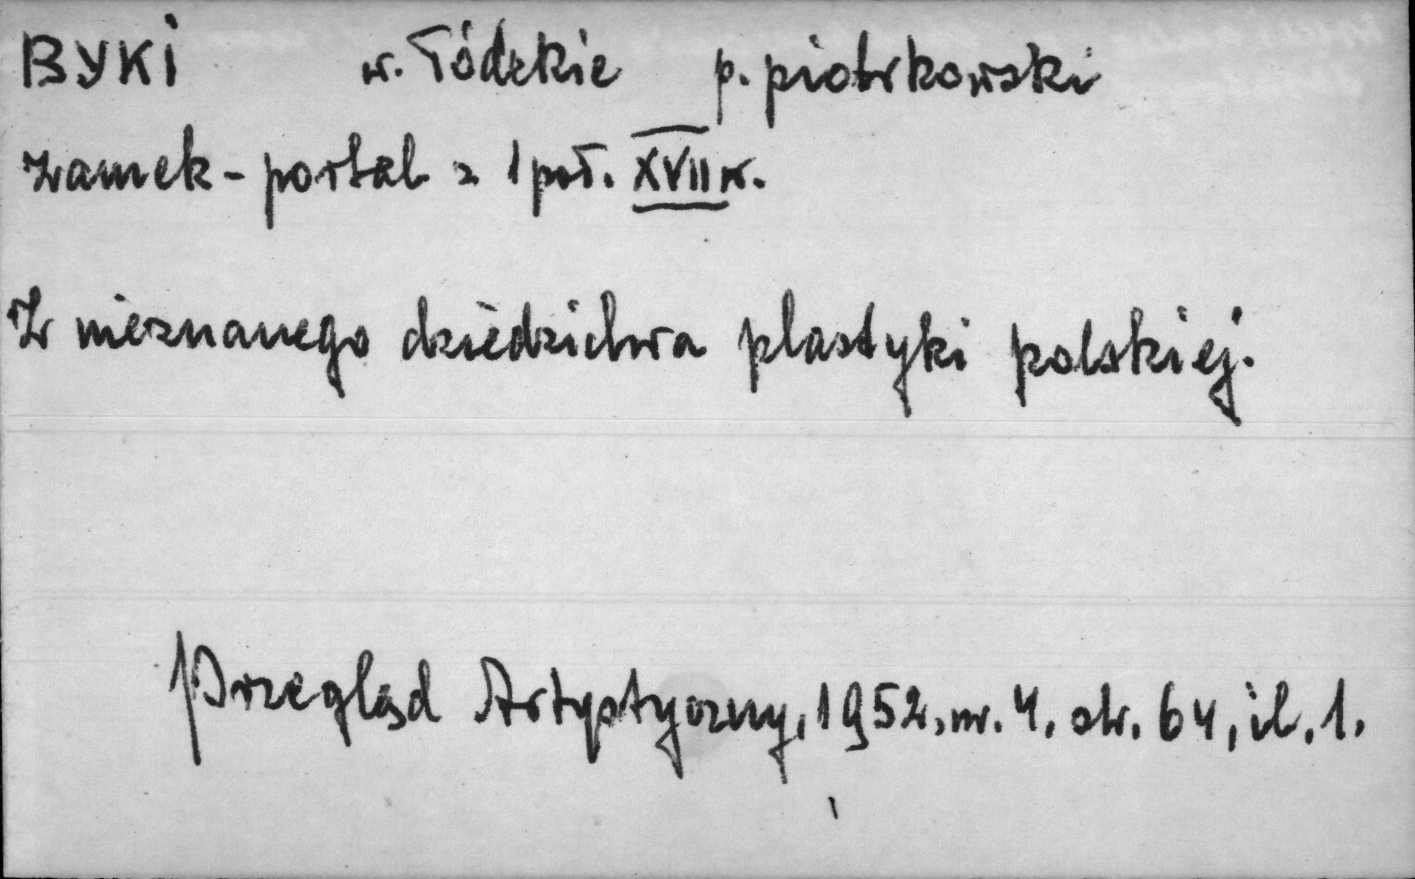 BYKI w. Łódzkie p. piotrkowski
zamek - portal z 1 poł. XVII w.
Z nieznanego dziedzictwa plastyki polskiej.
Przegląd Artystyczny, 1952, nr. 4, str. 64, il. 1.